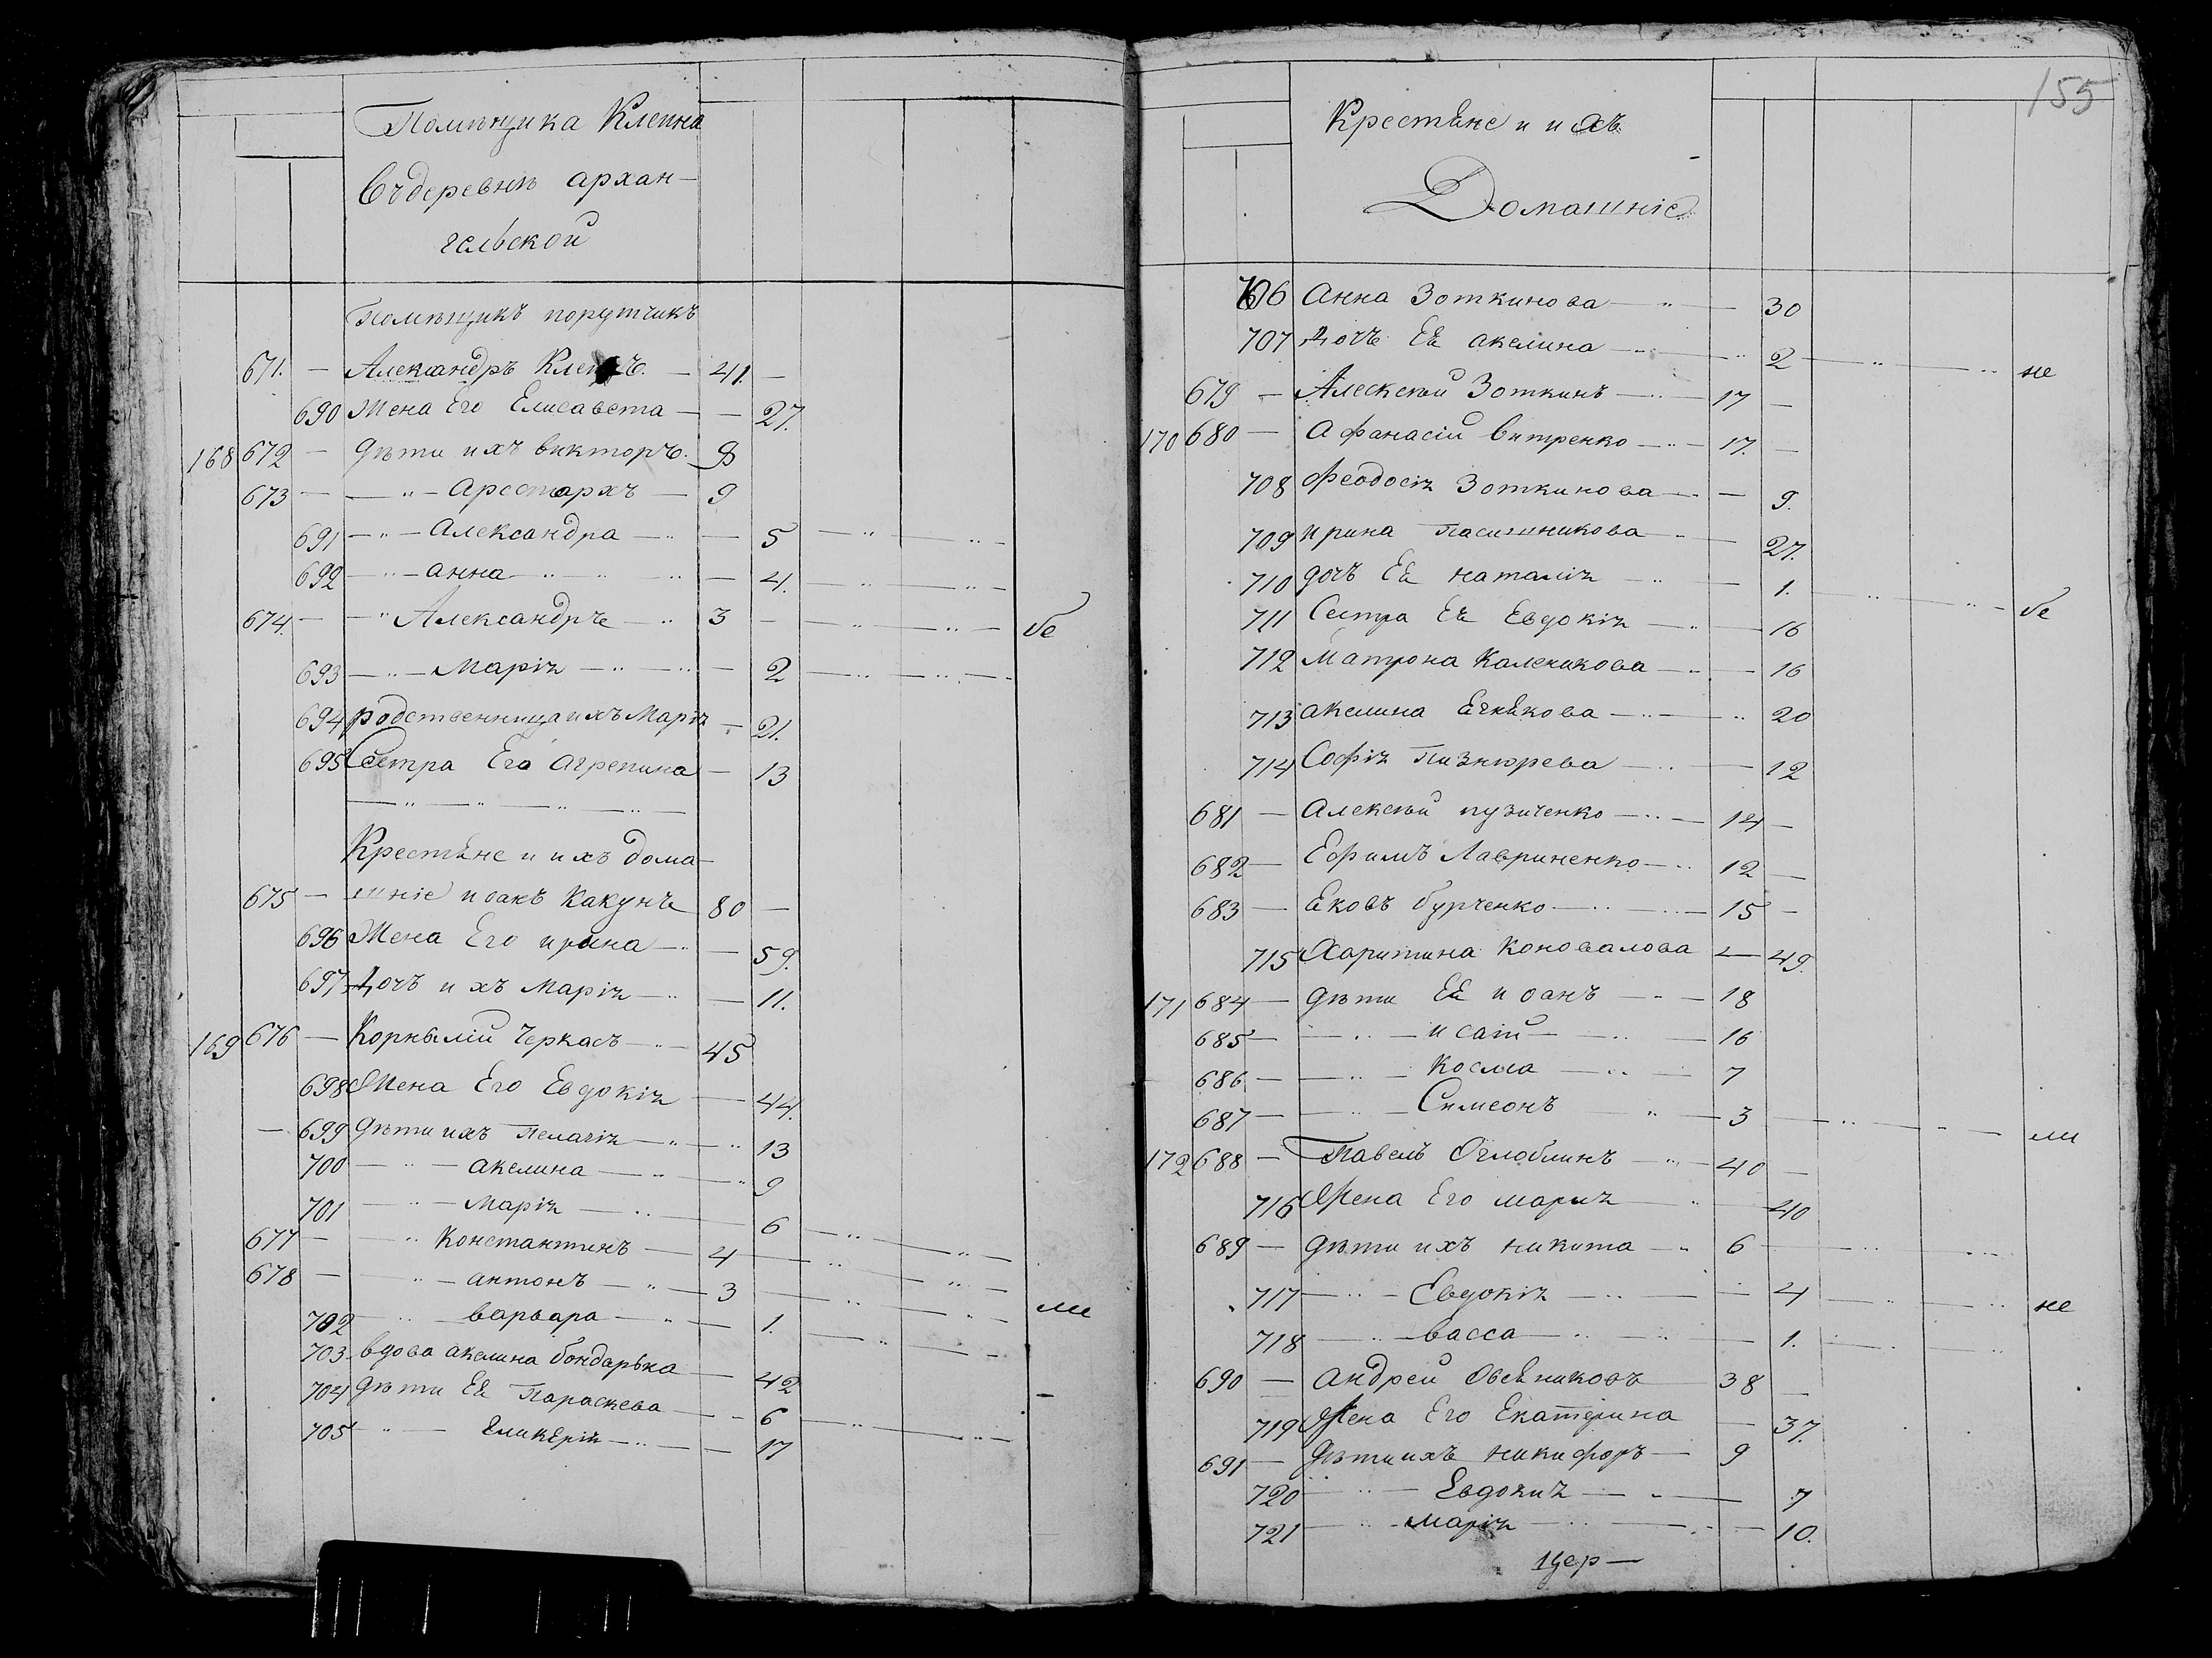 Помѣщика Клепка
Въ деревнѣ архан-
гельской
помѣщикъ порутчикъ
671. — Александръ — 41. —
690 Жена Его Елисавета — — 27.
168 672 — дѣти ихъ викторъ. 9
673 — — " — Арестархъ — 9
691 — " — Александра — " — 5 — " — " —
692 — " — анна — " " " — 4. " — " —
674. — — " Александръ — " 3 — — " — " — бе
693 — " — Марія — " — " — 2 — " — " —
694 родственница ихъ Марія — 21.
695 Сестра Его Агрепина — 13
— " — " — " — " —
Крестяне и ихъ дома-
675 — шніе иванъ Какунъ 80 —
696 Жена Его ирина — " — 59.
697 Дочъ ихъ Марія — " — 11.
169 676 — Корнылій Черкасъ — " — 45
698 Жена Его Евдокія — 44.
— 699 дѣти ихъ пелагія — " — " 13
700 — " — акелина — " — " 9
701 — " — Марія — " — 6 — " — " —
677 — — " Константинъ — 4 — " — " —
678 — " — антонъ — " — 3 — " — " — ли
702 — " — варвара — " — 1. — " — " —
703 вдова акелина бондарька — 42
704 дѣти Ея Параскева — — 6 — " — " —
705 " — Еликерія — " — — 17
155
Крестяне и ихъ
Домашніе
706 Анна Зоткинова — " — 30
707 Дочъ Ея акелина — " — " 2 — " — " не
679 — Алексѣй Зоткинъ — " — 17 —
170 680 — Афанасій витренко — " — 17. —
708 Феодосія Зоткинова — " — 9.
709 Ирина пасишникова — " — 27.
710 дочъ Ея наталія — " — 1. — " — " — бе
711 Сестра Ея Евдокія — " — 16
712 Матрона Каленикова — " — 16
713 акелина — " — " 20
714 Софія — " — 12
681 — алексѣй пузиченко — " — 14 —
682 — Ефимъ Лавриненко — " 12 —
683 — Яковъ бурченко — " — " — 15 —
715 Харитина Коновалова — 49.
171 684 — дѣти Ея иванъ — " — 18
685 — — " — исай — " — 16
686 — — " — Косма — " — 7
687 — — " — Симеонъ — " — 3 — " — " — ли
172 688 — Павелъ Оглоблинъ — " — 40 —
716 Жена Его мария — " 40
689 — дѣти ихъ никита — " 6 — " — "
717 — " — Евдокія — " — — 4 — " — " не
718 — " — васса — " — " — 1. — " — "
690 — андрей Овсяниковъ 38 —
719 Жена Его Екатерина — 37.
691 — дѣти ихъ никифоръ — 9
720 — " — Евдокия — " — 7
721 — " — марія — " — " — 10.